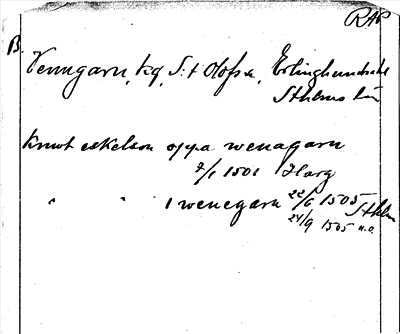 RAP
B.
Venngarn, kg, S:t Olofs sn, Erlinghundra hd
Sthlms län
Knwt eskelson oppa wenagarn
7/1 1501 Harg
" " i wenegarn 22/6 1505 Sthlm
24/9 1505 u.o.